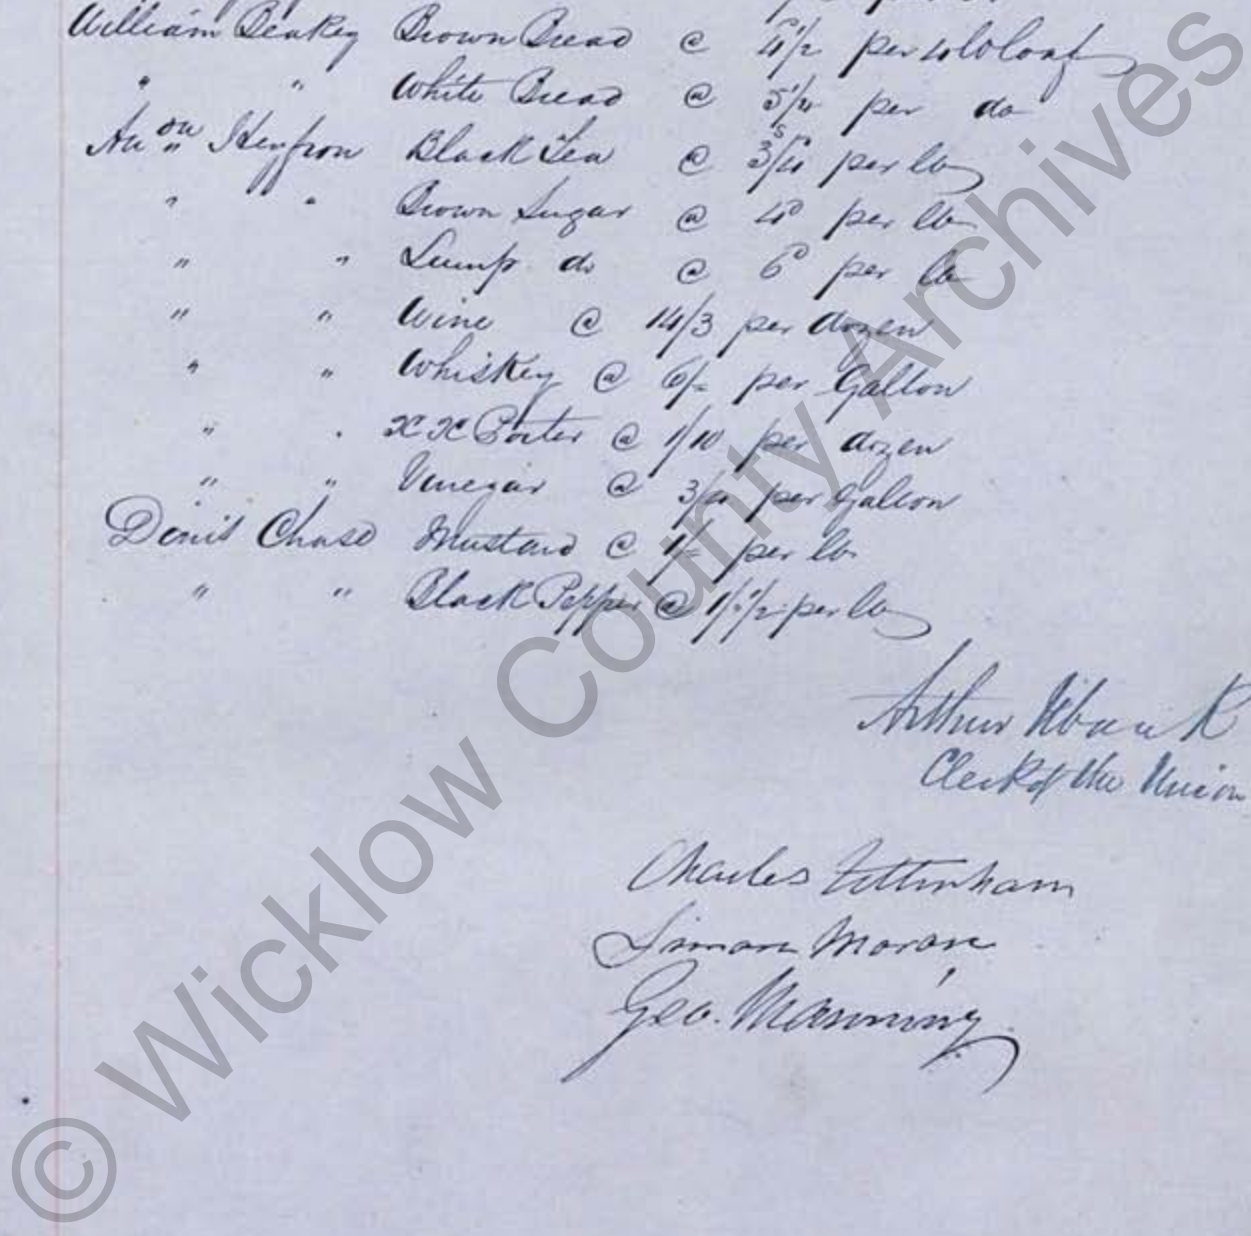 William Beakey Brown Bread @ 4½ per 4 lb loaf
" " White Bread @ 5¼ per do
Black Tea @ 3/4 per lb
" " Brown Sugar @ 4D per lb
" " Lump do @ 6D per lb
" " Wine @ 14/3 per dozen
" " Whiskey @ 6/= per Gallon
" " XX Porter @ 1/10 per dozen
" " Vinegar @ per Gallon
Denis Chase Mustard @ 1/= per lb
" " Black Pepper @ 1/.½ per lb
Arthur
Clerk of the Union
Charles Tottenham
Simon Moran
Geo. Manning
© Wicklow County Archives